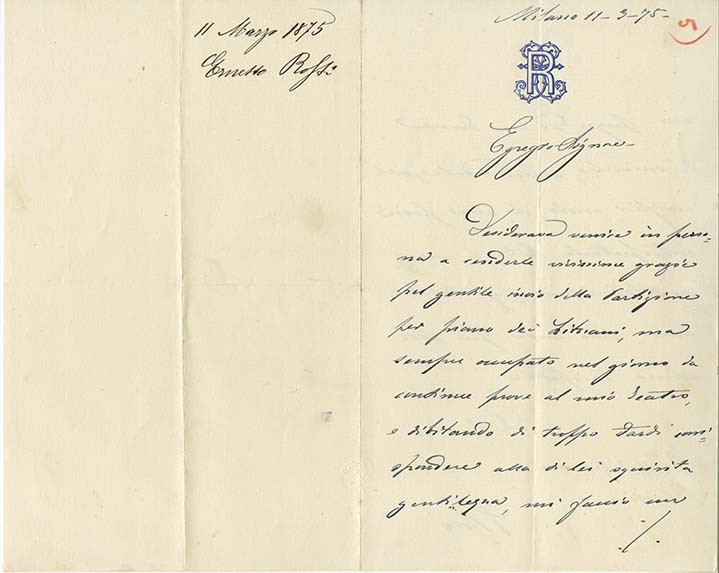 11 Marzo 1875
Ernesto Rossi
Milano 11-3-75-
5
ER
Egregio Signore
Desiderava venire in perso=
na a renderle vivissime grazie
pel gentile invio della Partizione
per piano dei Lituani, ma
sempre occupato nel giorno da
continue prove al mio teatro,
e dubitando di troppo tardi corri=
spondere alla di lei squisita
gentilezza, mi faccio un
./.